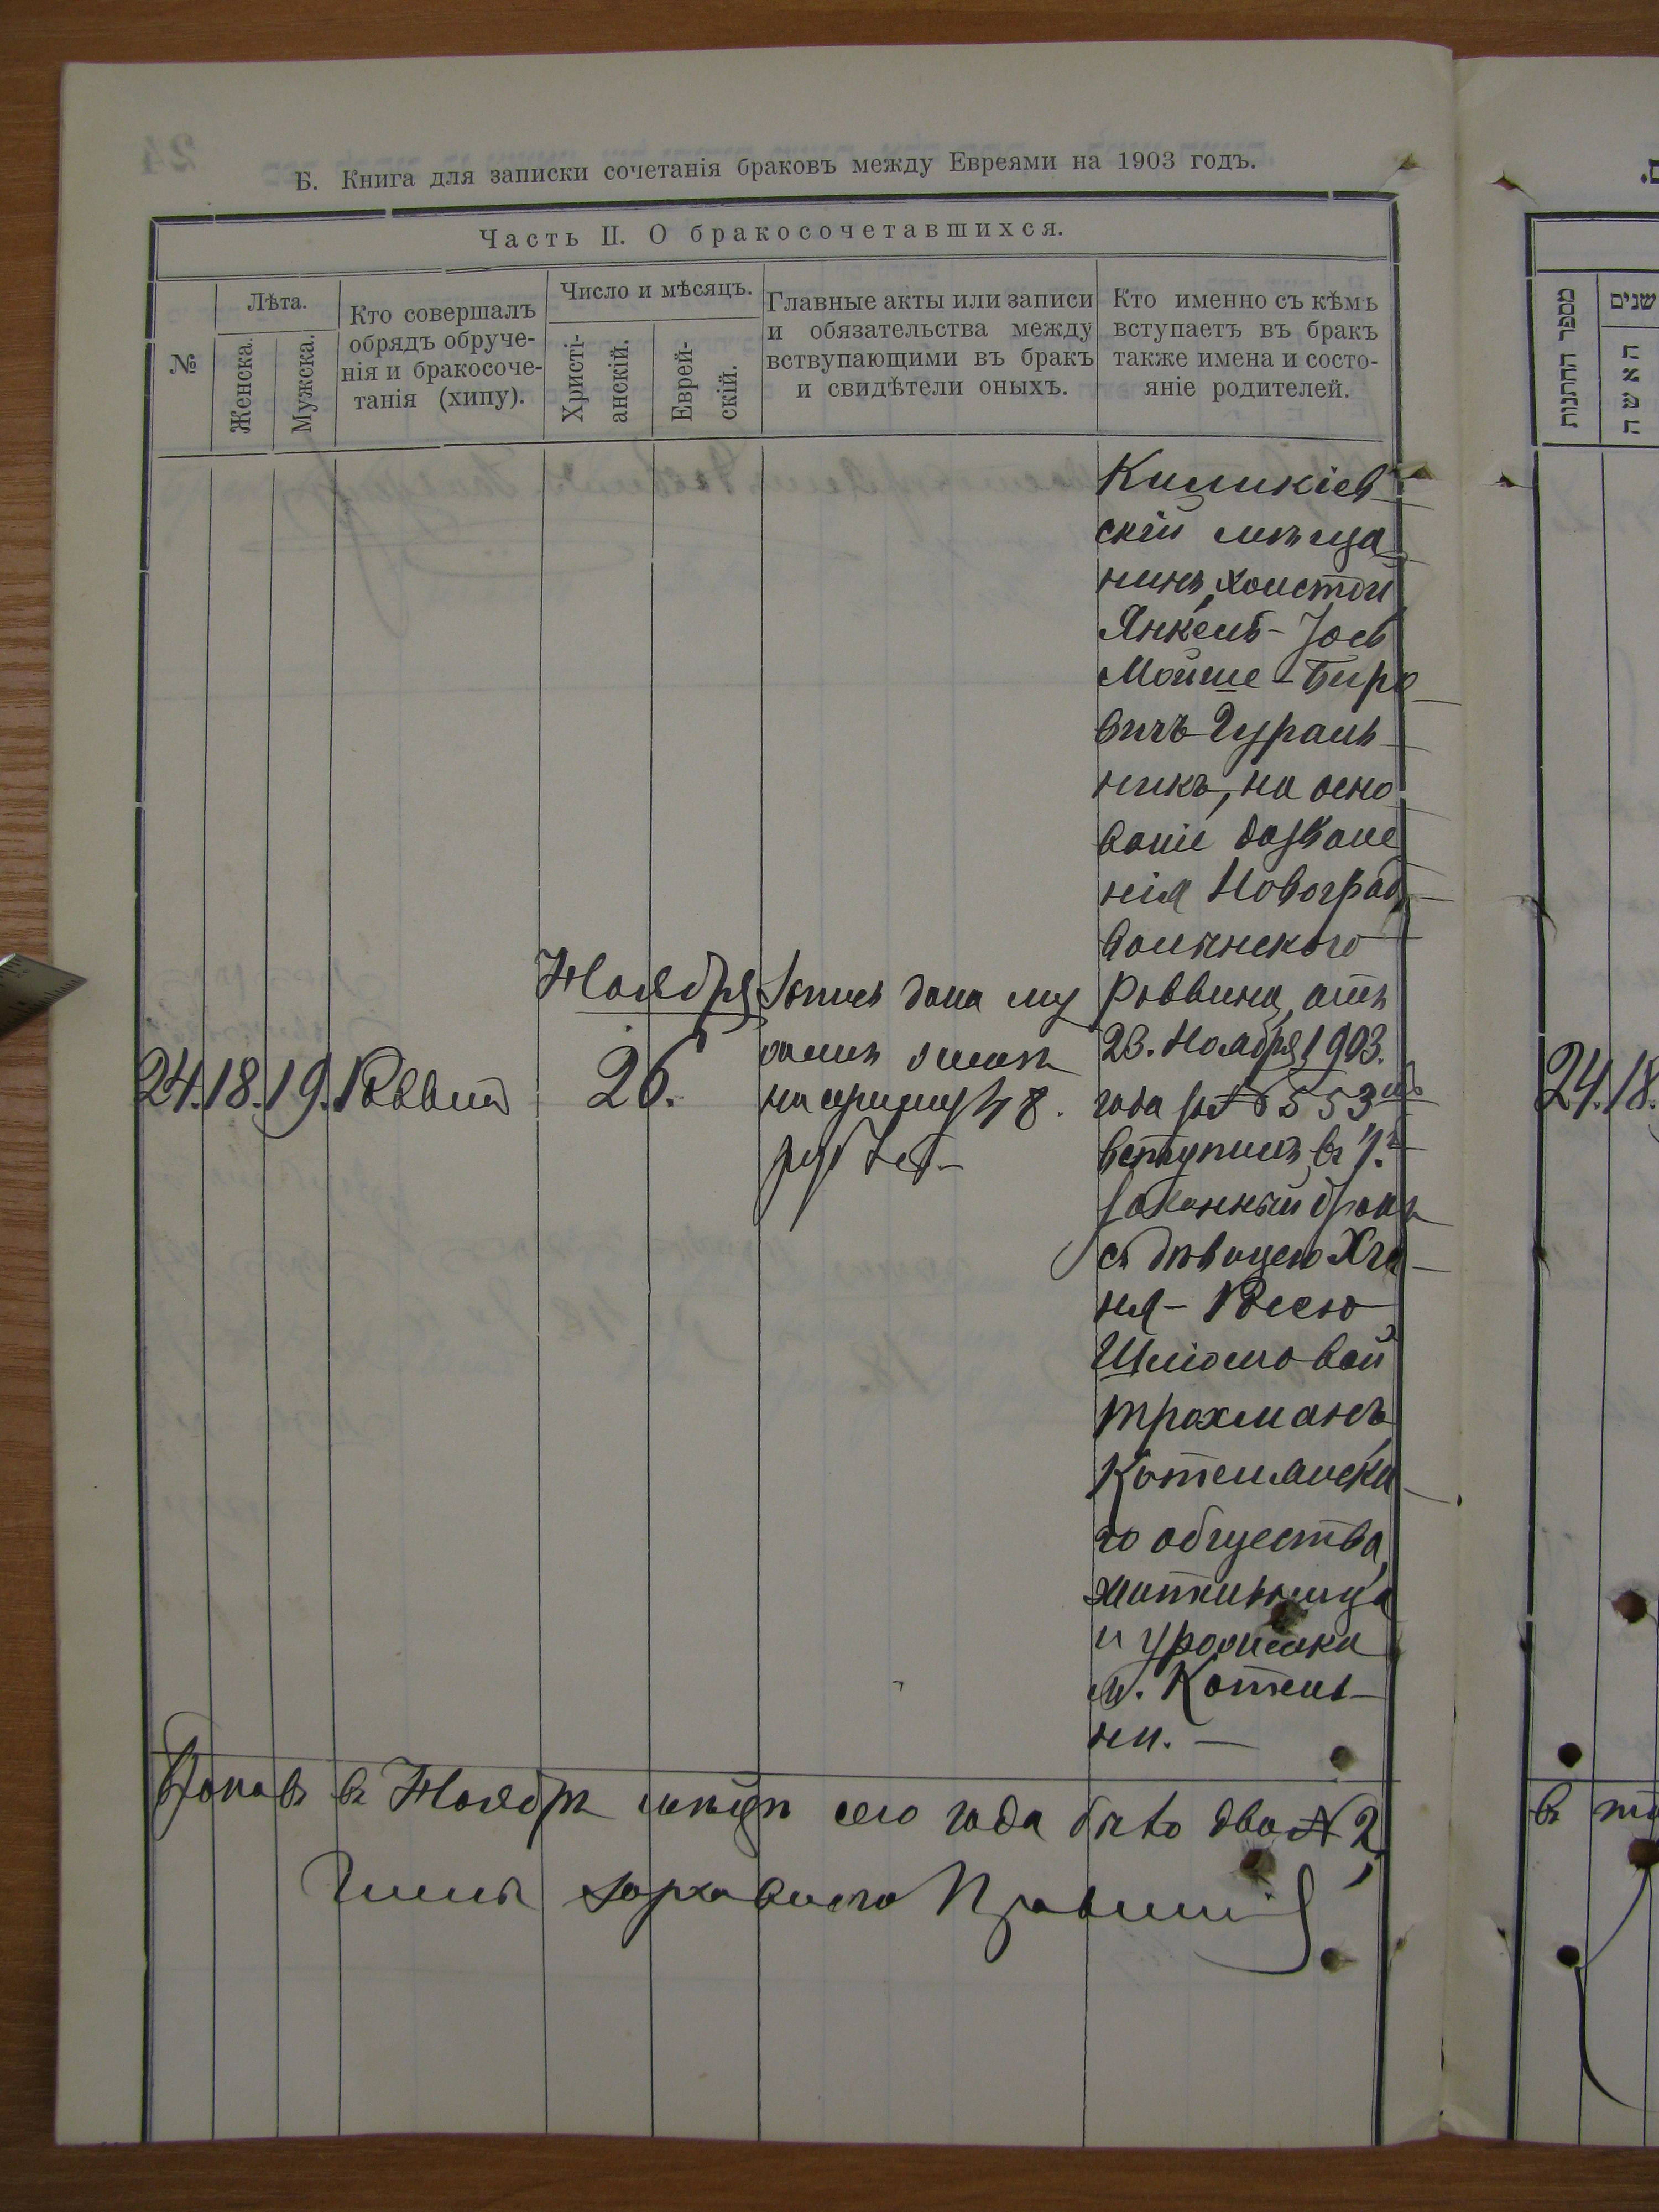 Б. Книга для записки сочетанія браковъ между Евреями на 1903 годъ.
Часть II. О бракосочетавшихся.
№
Лѣта.
Женска.
Мужска.
Кто совершалъ
обрядъ обруче-
нія и бракосоче-
танія (хипу).
Число и мѣсяцъ.
Христі-
анскій.
Еврей-
скій.
Главные акты или записи
и обязательства между
вствупающими въ бракъ
и свидѣтели оныхъ.
Кто именно съ кѣмъ
вступаетъ въ бракъ
также имена и состо-
яніе родителей.
24. 18. 19. Раввинъ
Ноября
26.
Запись дана му
жемъ
на сумму 48.
руб
скій мѣща
нинъ, холостой
Янкель-Іос
Мойше-Бер
вичъ Гураль
никъ, на осно
ваніи дозволе
нія Новоград
волынского
Раввина, отъ
23. Ноября 1903.
года за № 553
вступилъ въ 1.
законный бракъ
съ дѣвицею Ха
ня-Рисею
Шліомовой
Трахманъ
Котелянска
го общества,
жительница
и уроженка
м. Котель-
ни.
Браковъ въ Ноябрѣ мѣсяцѣ сего года было два № 2
מספר החתנות
שנים
האשה
24. 18.